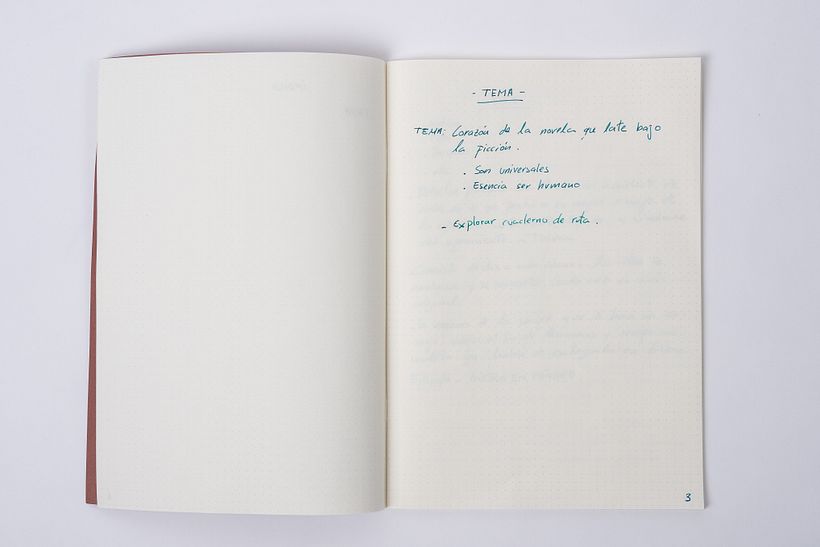 - TEMA -
TEMA: Corazón de la novela que late bajo
la ficción.
· Son universales
· Esencia ser humano
- Explorar cuaderno de ruta.
3